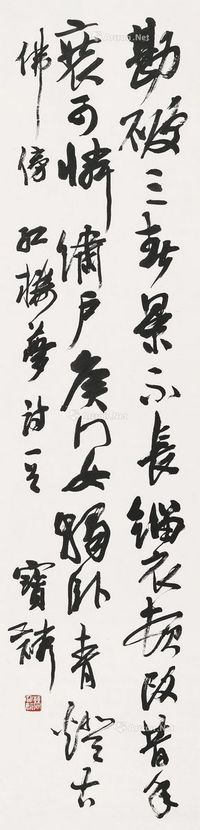 勘破三春景不長緇衣頓改昔年
裝可憐繡戶侯門女獨臥青燈古
佛傍 紅樓夢詩一 寶